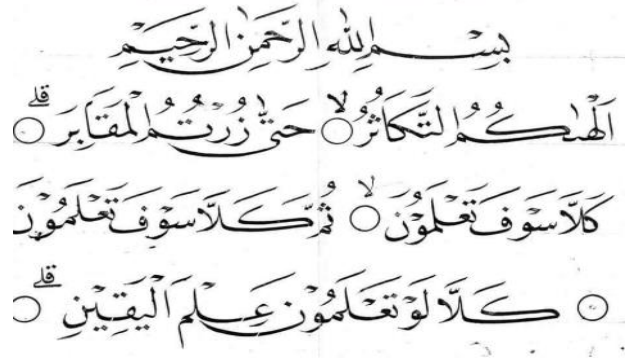 بِسْمِ اللهِ الرَّحْمٰنِ الرَّحِيْمِ
اَلْهٰىكُمُ التَّكَاثُرُ ○ لا حَتّٰى زُرْتُمُ الْمَقَابِرَ ○ قلے
كَلَّا سَوْفَ تَعْلَمُوْنَ ○ لا ثُمَّ كَلَّا سَوْفَ تَعْلَمُوْنَ
○ كَلَّا لَوْ تَعْلَمُوْنَ عِلْمَ الْيَقِيْنِ ○ قلے